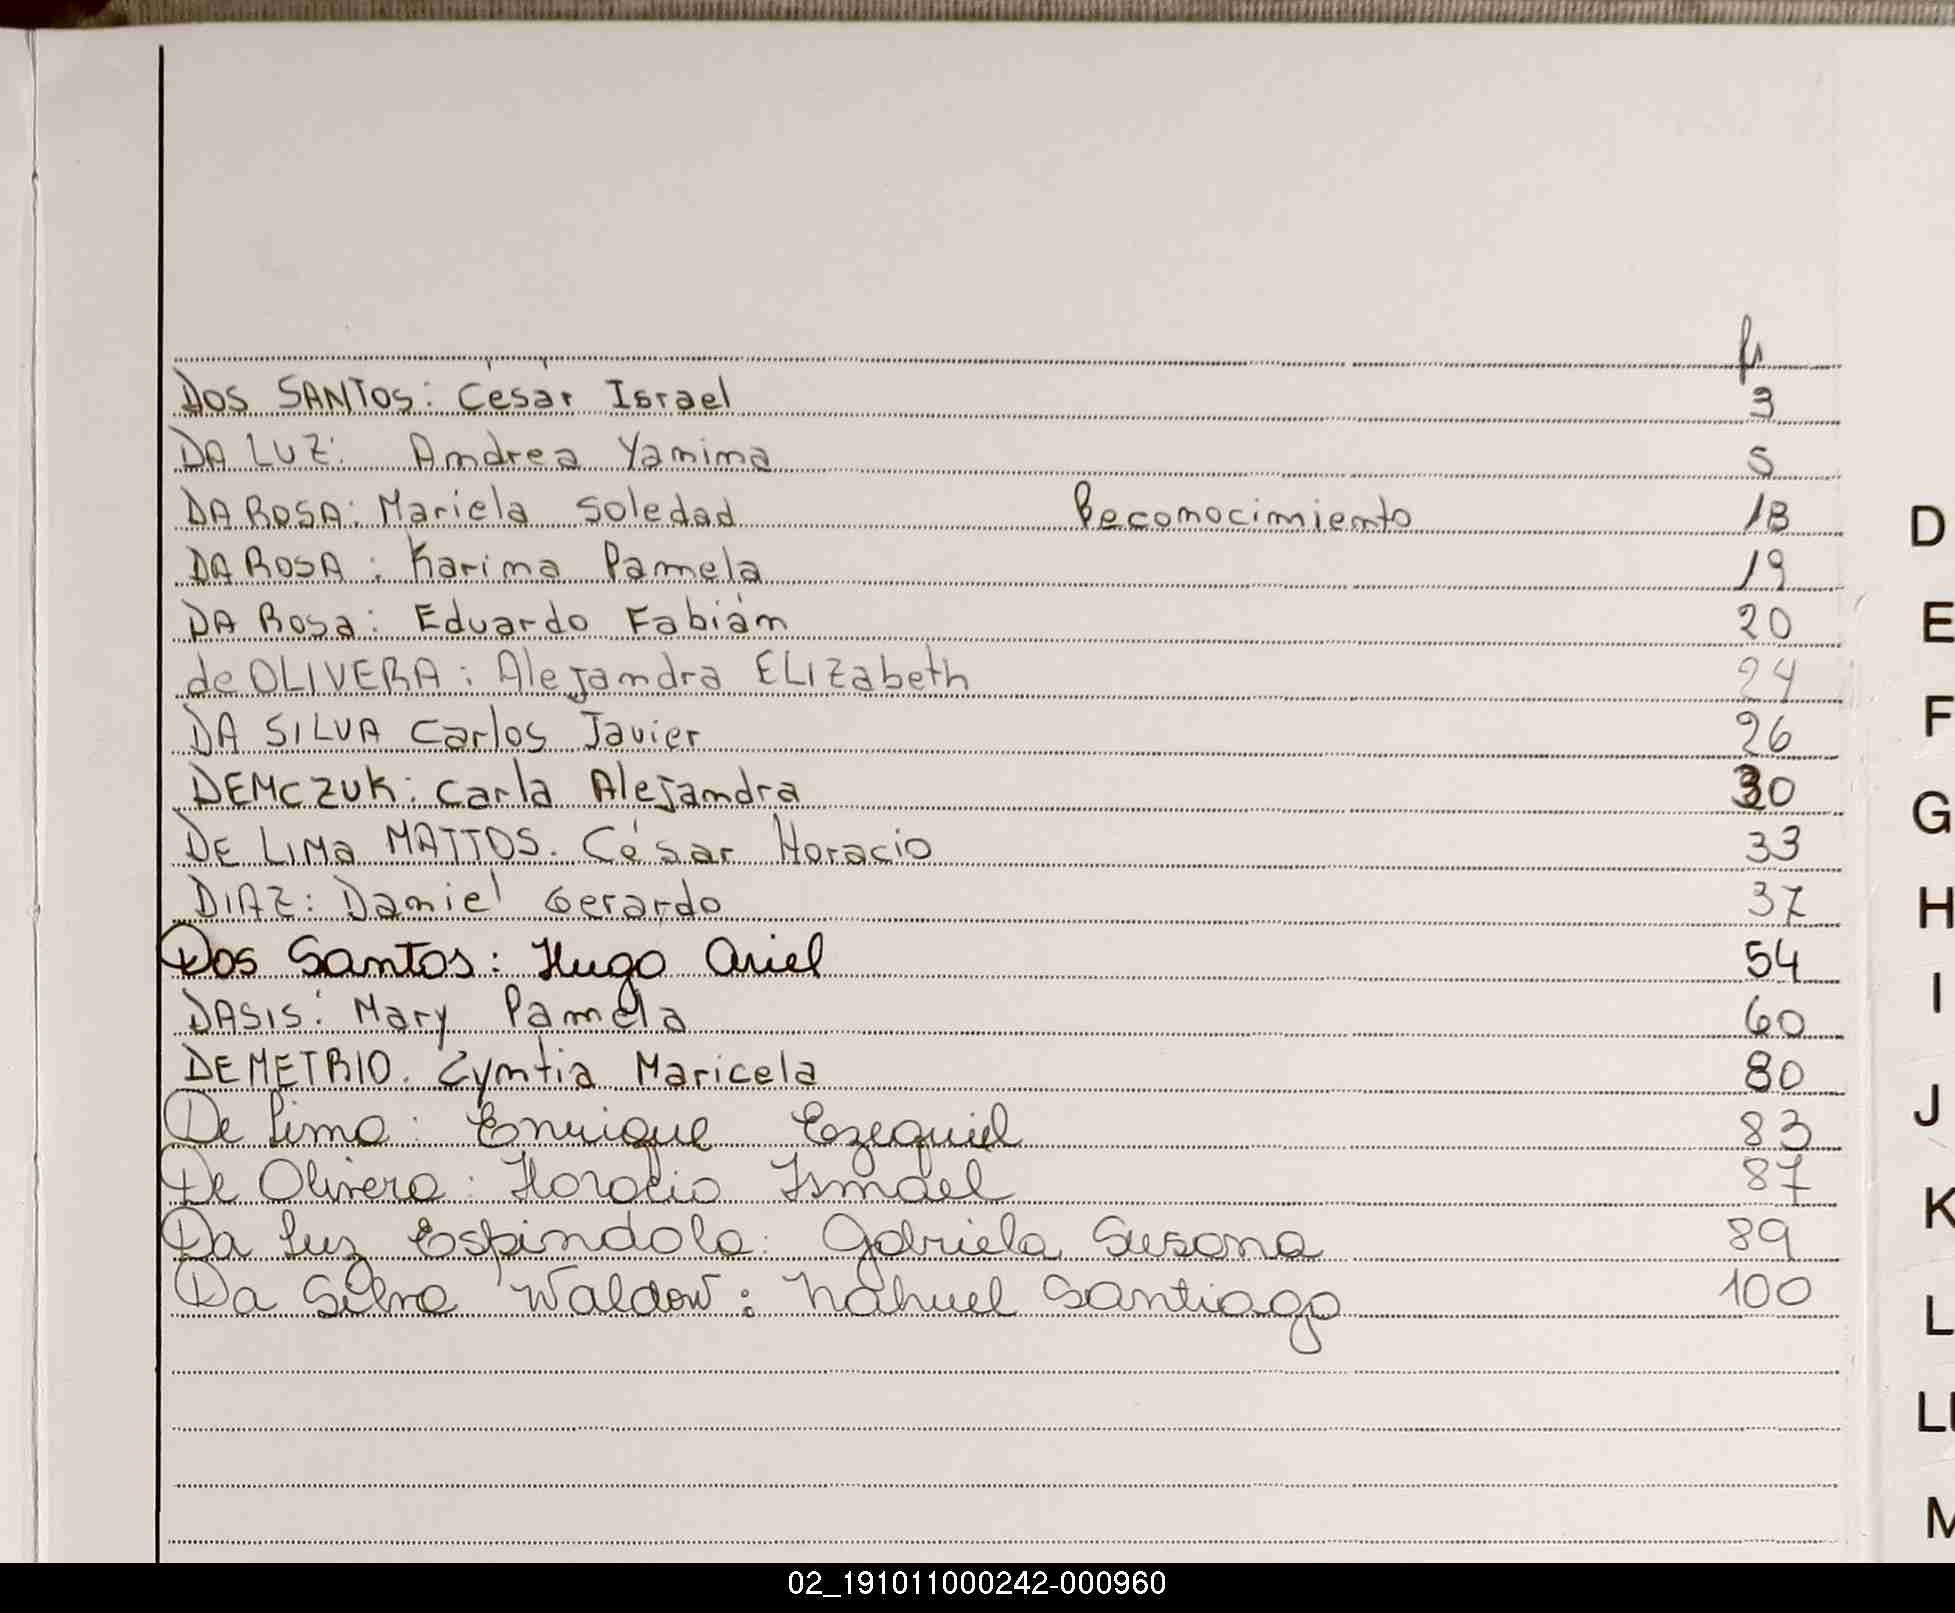 fs
DOS SANTOS: César Israel 3
DA LUZ: Andrea Yanina 5
DA ROSA: Mariela Soledad Reconocimiento 13
DA ROSA: Karina Pamela 19
DA Rosa: Eduardo Fabián 20
de OLIVERA: Alejandra ELIzabeth 24
DA SILVA Carlos Javier 26
DEMCZUK: Carla Alejandra 30
DE LIMA MATTOS. César Horacio 33
DIAZ: Daniel Gerardo 37
Dos Santos: Hugo Ariel 54
DASIS: Mary Pamela 60
DEMETRIO. Cyntia Maricela 80
De Lima: Enrique Ezequiel 83
De Olivera: Horacio Ismael 87
Da Luz Espindola: Gabriela Susana 89
Da Silva Waldow: Nahuel Santiago 100
D
E
F
G
H
I
J
K
L
LL
M
02_191011000242-000960